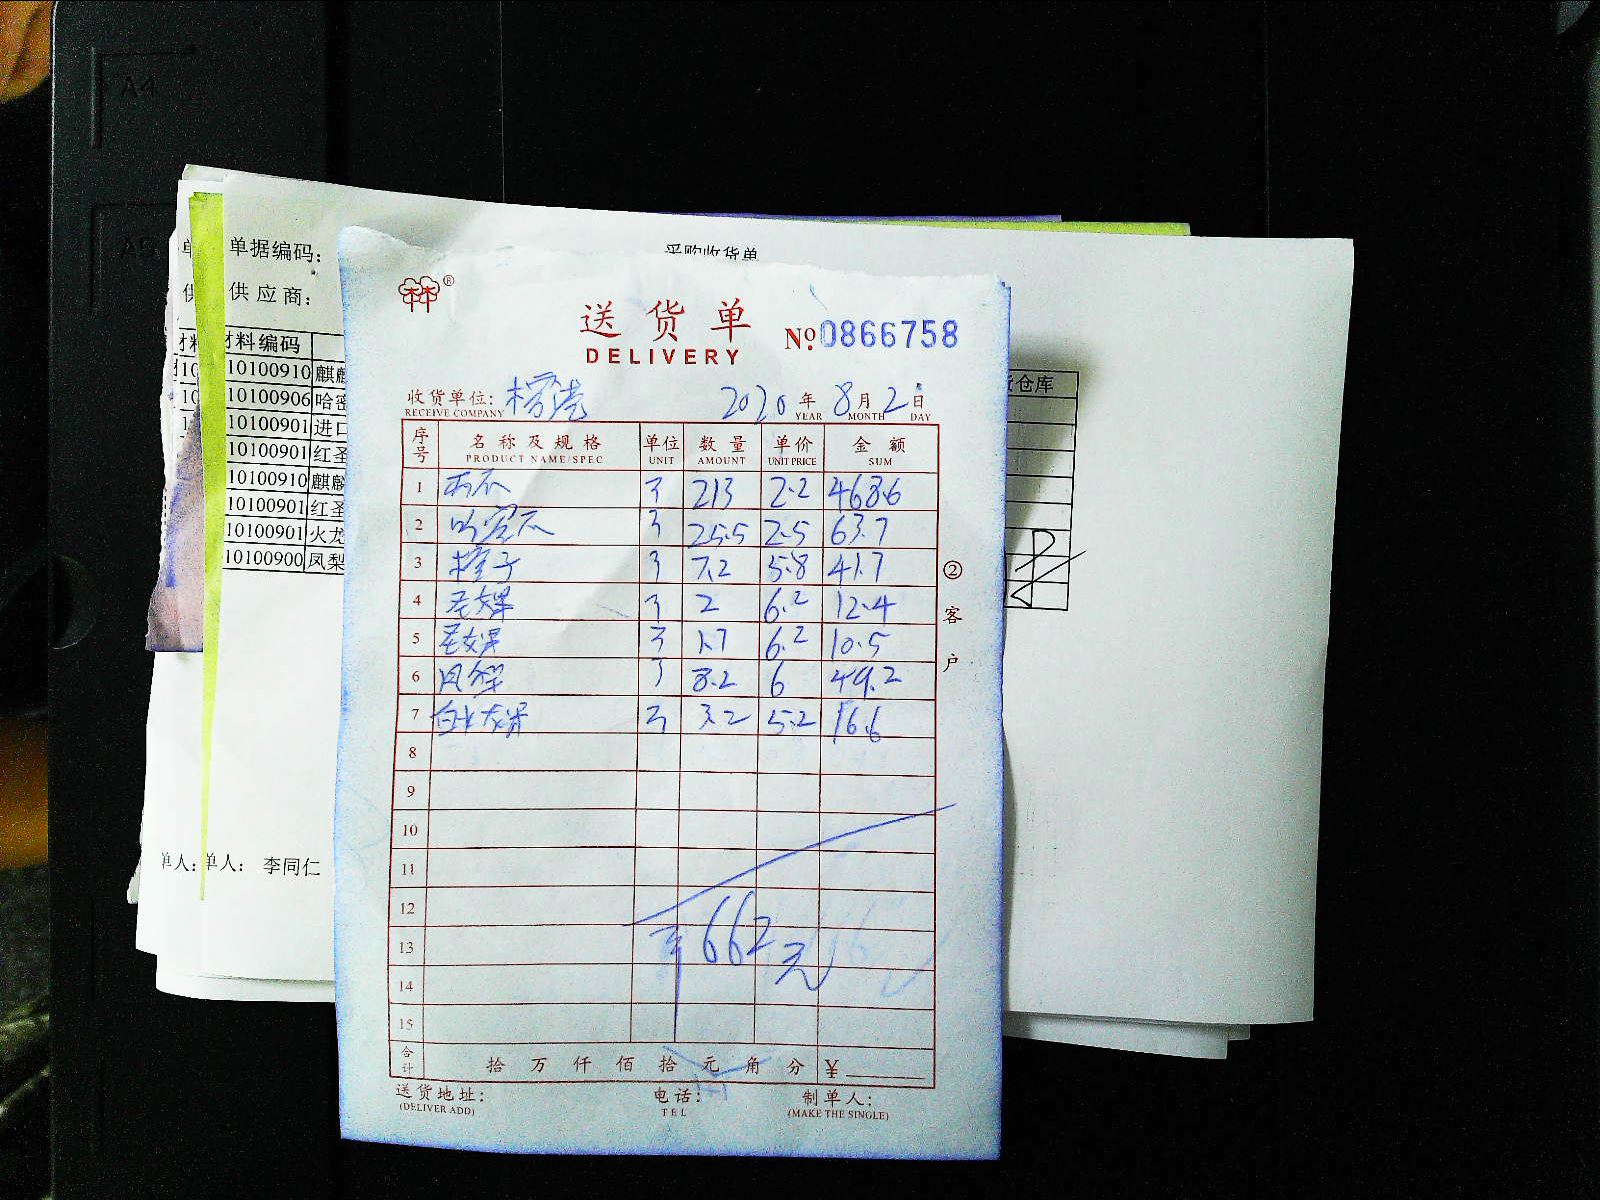 A4
A5
单据编码：
采购收货单
供应商：
材料编码
货仓库
10100910 麒麟
10100906 哈密
10100901 进口
10100901 红圣
10100910 麒麟
10100901 红圣
10100901 火龙
10100900 凤梨
单人：单人： 李同仁
林®
送货单
DELIVERY
№ 0866758
收货单位：
RECEIVE COMPANY
2020 年 8 月 2 日
YEAR MONTH DAY
序号 名称及规格 单位 数量 单价 金额
PRODUCT NAME/SPEC UNIT AMOUNT UNIT PRICE SUM
1 西瓜 213 2.2 468.6
2 哈密瓜 25.5 2.5 63.7
3 橙子 7.2 5.8 41.7
4 圣女果 2 6.2 12.4
5 圣女果 1.7 6.2 10.5
6 凤梨 8.2 6 49.2
7 白火龙果 3.2 5.2 16.6
8
9
10
11
12
13
14
15
662元
合计 拾 万 仟 佰 拾 元 角 分 ¥
② 客户
送货地址：
(DELIVER ADD)
电话：
TEL
制单人：
(MAKE THE SINGLE)